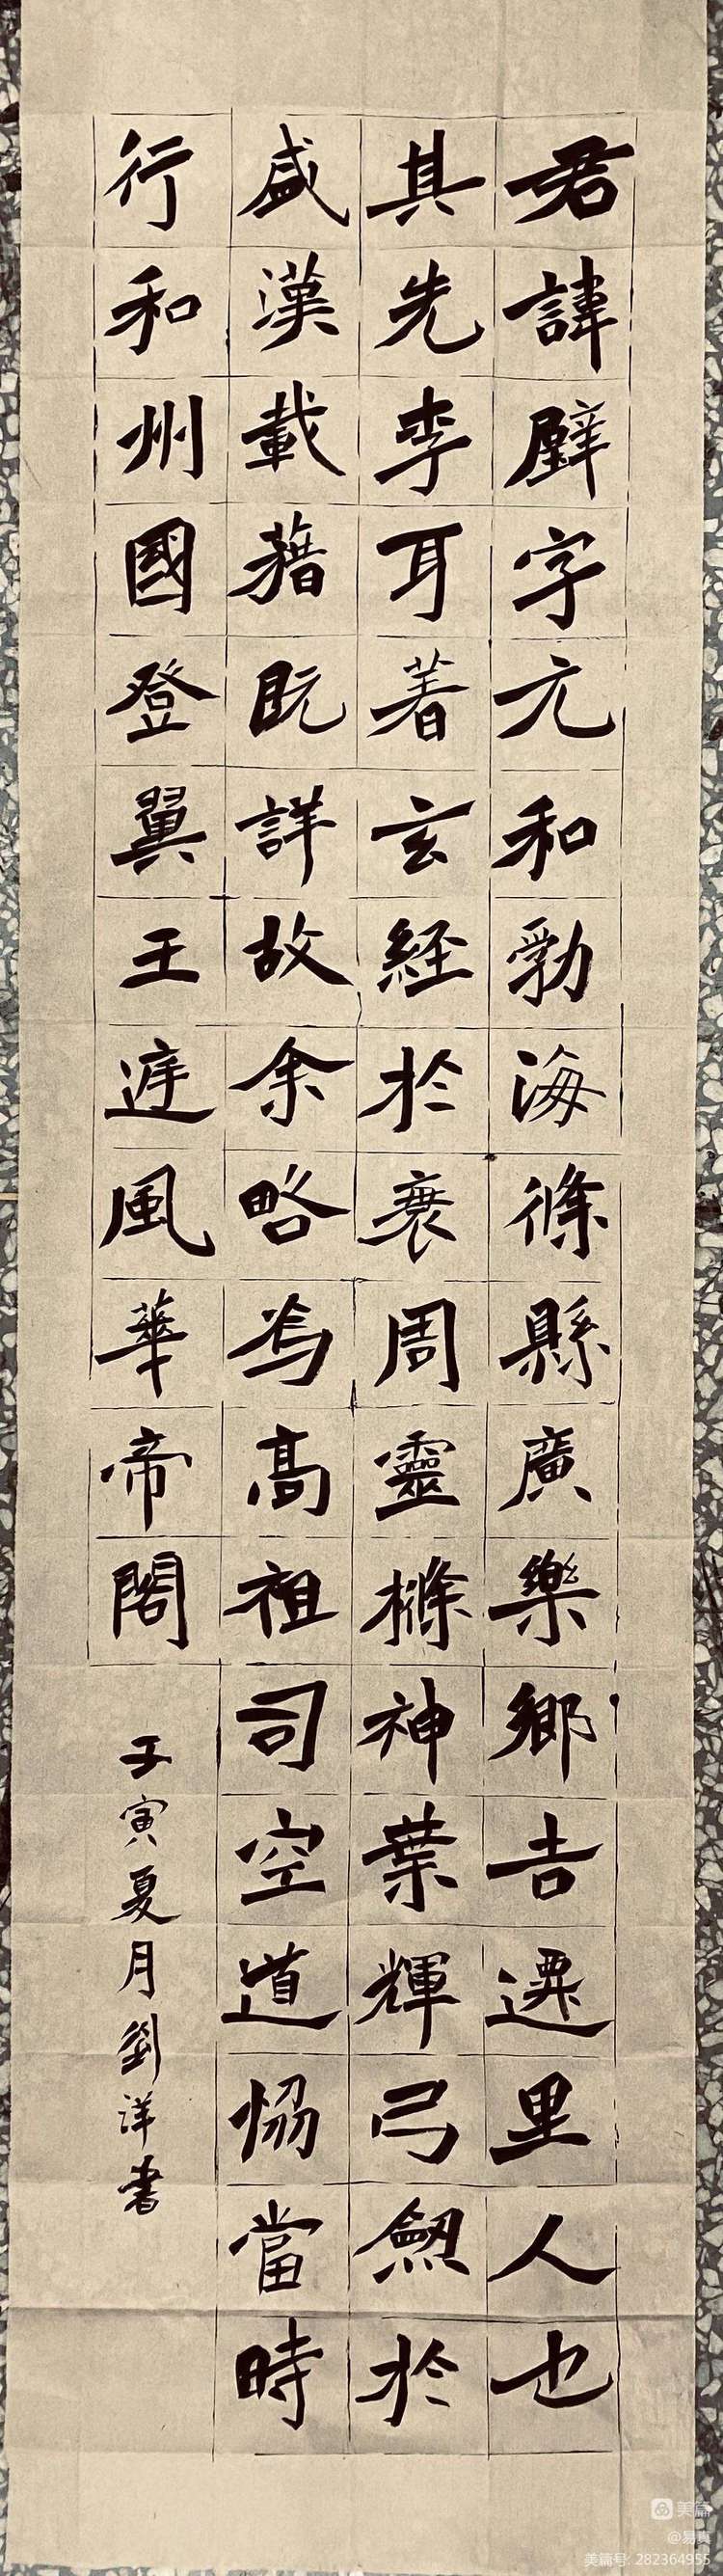 君諱壁字元和勃海條縣廣樂鄉吉遷里人也
其先李耳著玄經於衰周靈樤神葉輝弓劔於
盛漢載籍既詳故余略焉高祖司空道協當時
行和州國登翼王遊風華帝閣
壬寅夏月劉洋書
美篇
@易真
美篇号: 282364955